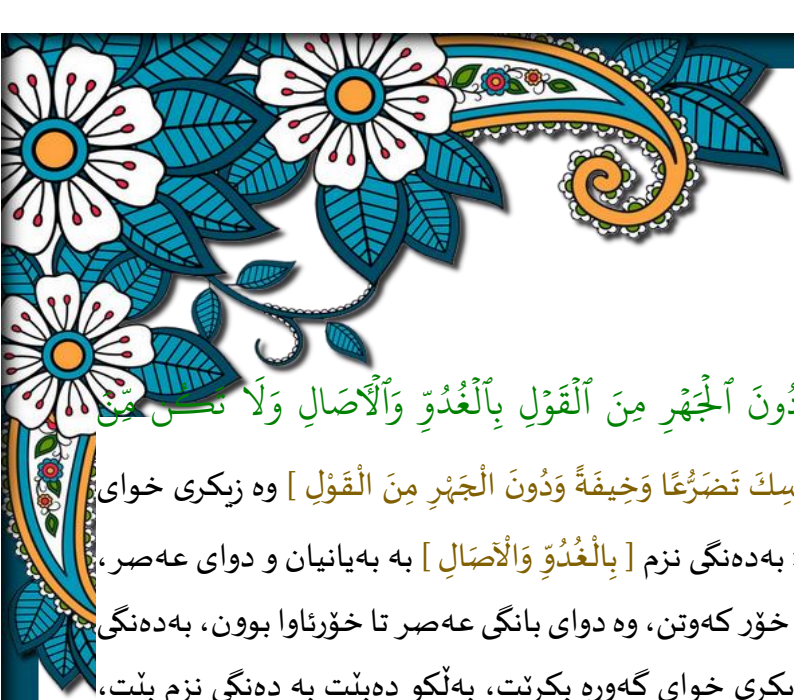 دُونَ ٱلْجَهْرِ مِنَ ٱلْقَوْلِ بِٱلْغُدُوِّ وَٱلْـَٔاصَالِ وَلَا تَكُن مِّنَ
تَضَرُّعًا وَخِيفَةً وَدُونَ الْجَهْرِ مِنَ الْقَوْلِ ] وه زیکری خوای
بهدهنگی نزم [ بِالْغُدُوِّ وَالْآصَالِ ] به بهیانیان و دوای عهصر،
خۆر کهوتن، وه دوای بانگی عهصر تا خۆرئاوا بوون، بهدهنگی
خوای گهوره بکرێت، بهڵکو دهبێت به دهنگی نزم بێت،